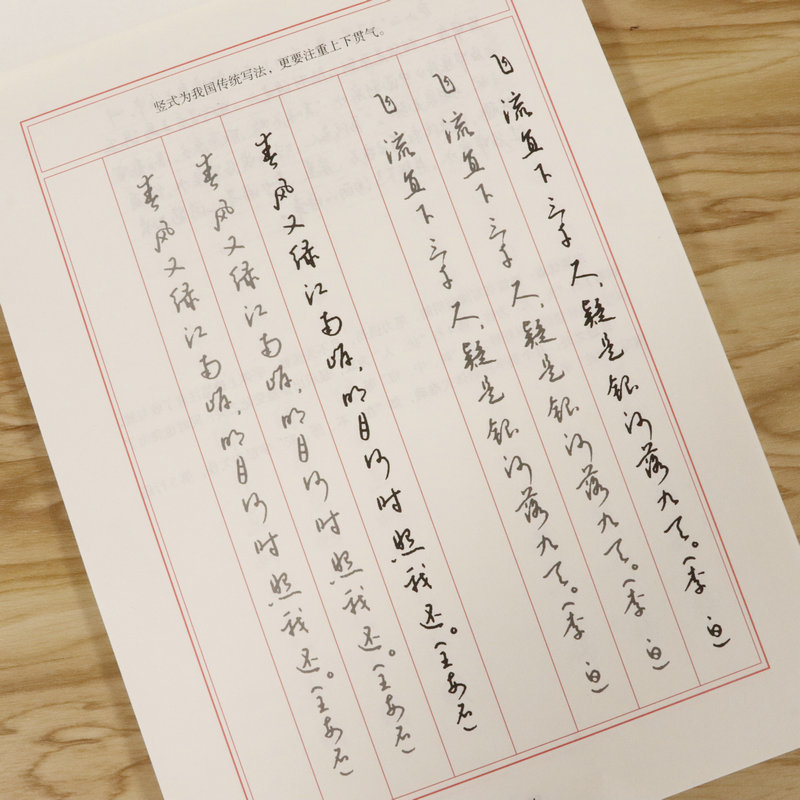 竖式为我国传统写法，更要注重上下贯气。
飞流直下三千尺，疑是银河落九天。（李白）
飞流直下三千尺，疑是银河落九天。（李白）
飞流直下三千尺，疑是银河落九天。（李白）
春风又绿江南岸，明月何时照我还。（王安石）
春风又绿江南岸，明月何时照我还。（王安石）
春风又绿江南岸，明月何时照我还。（王安石）